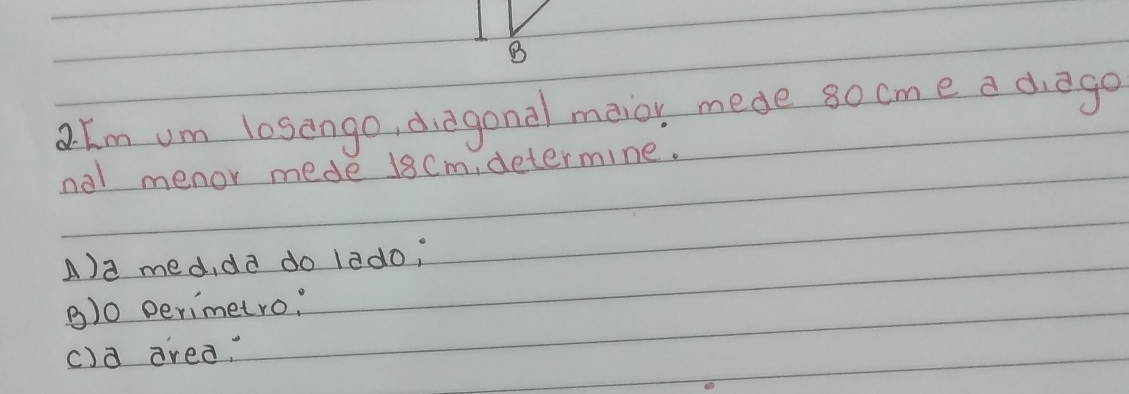 B
2. Em um losango, diagonal maior mede 80 cm e a diago
nal menor mede 18 cm, determine.
A) a medida do lado;
B) o perímetro;
C) a área;